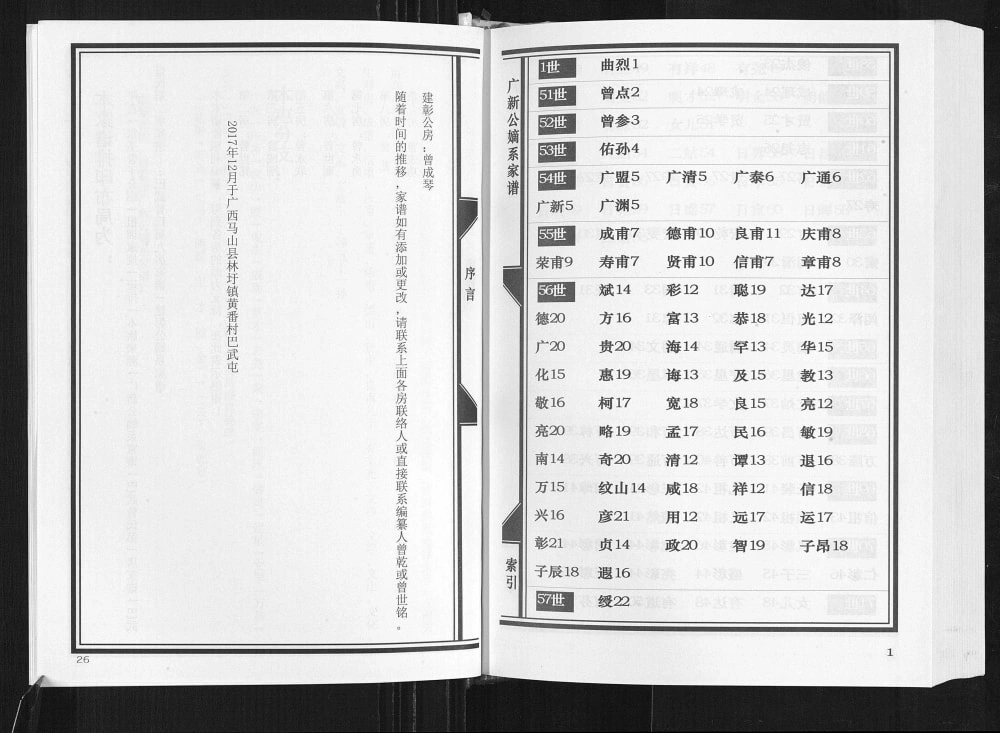 建彰公房：曾成琴
随着时间的推移，家谱如有添加或更改，请联系上面各房联络人或直接联系编纂人曾乾或曾世铭。
2017年12月于广西马山县林圩镇黄番村巴武屯
序言
26
广新公嫡系家谱
索引
1世 曲烈1
51世 曾点2
52世 曾参3
53世 佑孙4
54世 广盟5 广清5 广泰6 广通6
广新5 广渊5
55世 成甫7 德甫10 良甫11 庆甫8
荣甫9 寿甫7 贤甫10 信甫7 章甫8
56世 斌14 彩12 聪19 达17
德20 方16 富13 恭18 光12
广20 贵20 海14 罕13 华15
化15 惠19 诲13 及15 教13
敬16 柯17 宽18 良15 亮12
亮20 略19 孟17 民16 敏19
南14 奇20 清12 谭13 退16
万15 纹山14 咸18 祥12 信18
兴16 彦21 用12 远17 运17
彰21 贞14 政20 智19 子昂18
子辰18 遐16
57世 绶22
1